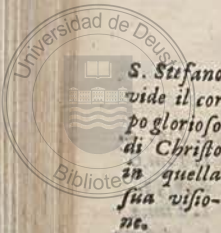 Universidad de Deusto
Biblioteca
S. Stefano
vide il cor
po glorioſo
di Chriſto
in quella
ſua viſio-
ne.